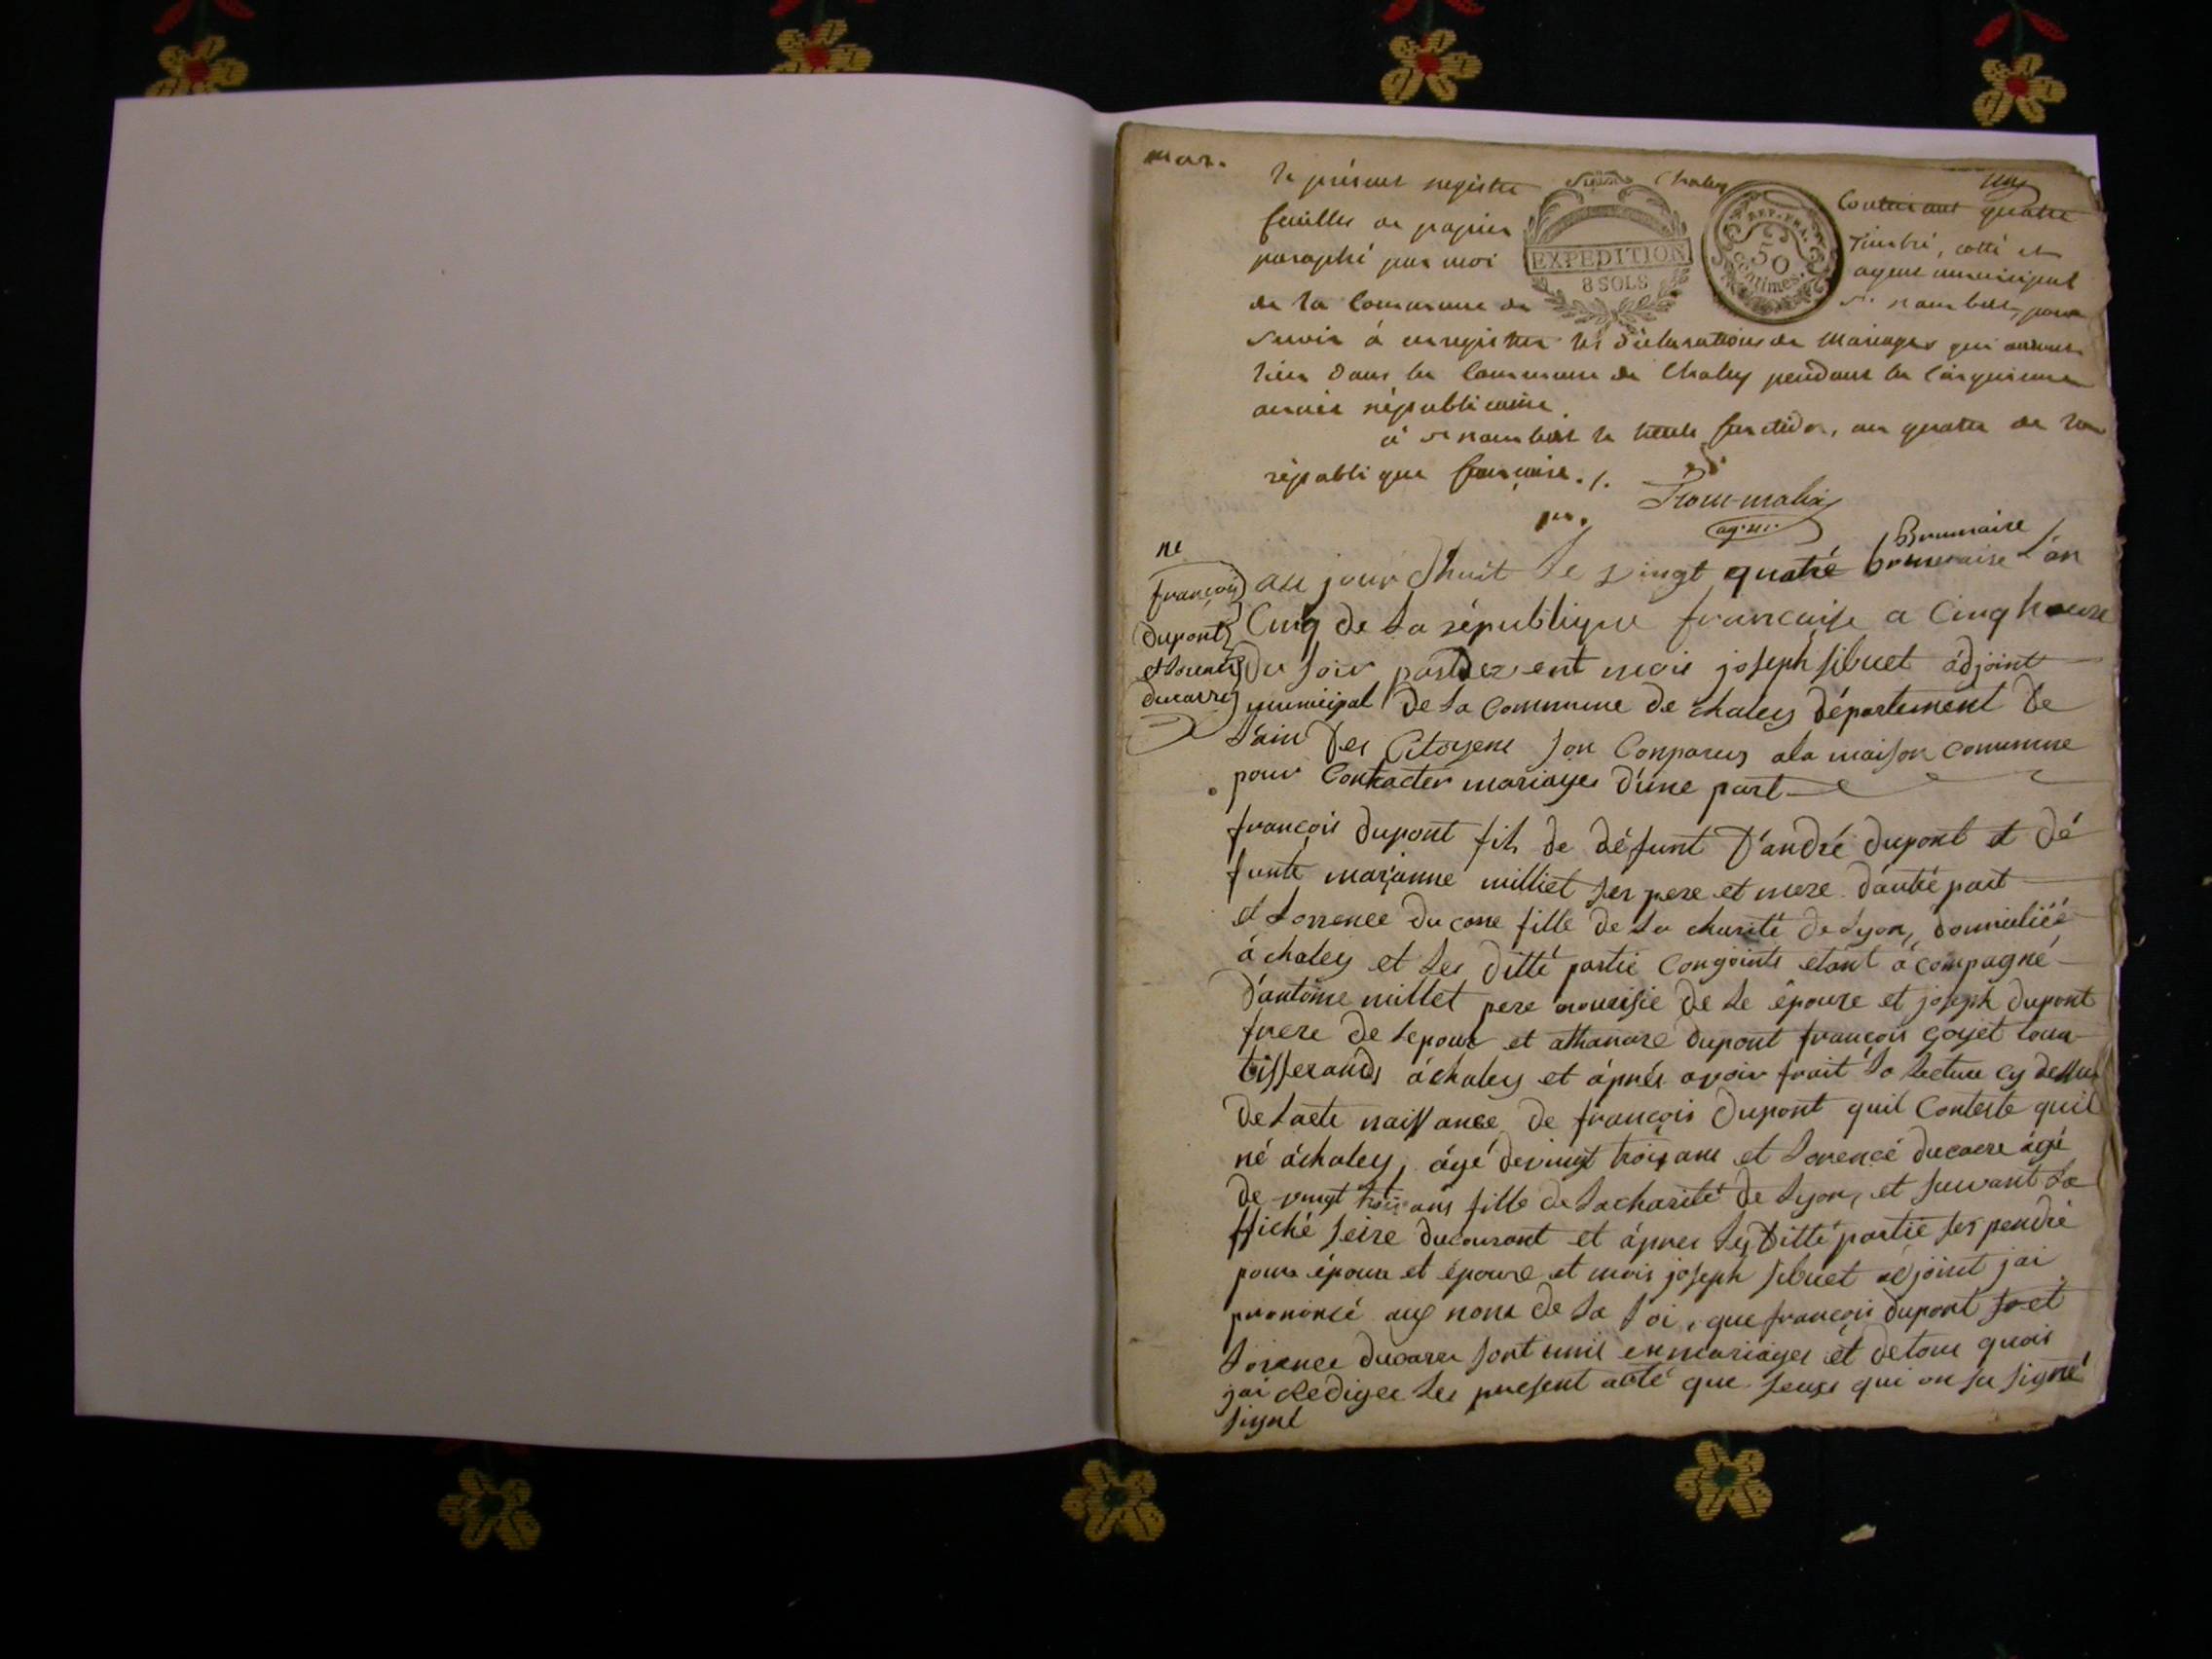 mar.
Chaley
un
le présent registre contenant quatre
feuilles de papier timbré, cotté et
EXPEDITION
8 SOLS
REP. FRA.
50
centimes.
paraphé par moi agent municipal
de la Commune de st. rambert, pour
servir à enregistrer les déclarations de mariages qui auront
lieu dans la Commune de Chaley pendant la Cinquieme
année républicaine.
à st rambert le trente fructidor, an quatre de la
république française ./.
ag. m.
ne
françois
dupont
et Lorence
ducarre
Brumaire
au jourdhuit Le vingt quatre brumaire L'an
Cinq de La république francaise a Cinq heure
Du soir pardevent mois joseph sibuet adjoint
municipal De La Commune De chaley département De
Lain Des Citoyens son Comparus ala maison commune
pour Contracter mariages d'une part
françois Dupont fils De Défunt D'andré Dupont et Dé
funte marianne milliet ses pere et mere D'autre part
et Lorrence Ducarre fille De La charité De Lyon, Domicilié
à chaley et Les Ditte partie Congoints etant acompagné
D'antoine millet pere nourisie De Le épouse et joseph Dupont
frere De Lepoux et athanase Dupont françois goyet tous
tisserands à chaley et aprés avoir frait La Lecture cy dessus
De Lacte naissance De françois Dupont quil Conteste quil
né àchaley, agé De vingt trois ans et Lorence Ducarre agé
De vingt trois ans fille De Lacharité De Lyon, et suivant La
ffiché seize Ducourant et aprnes Les Ditte partie ses pendre
pour époux et épouse et mois joseph sibuet adjoint jai
prononcé aux nom De La Loi, que françois Dupont et
Lorence Ducarre sont unis en mariages et De tous quois
jai Rediger Les present acte que seuxs qui on su signé
signé